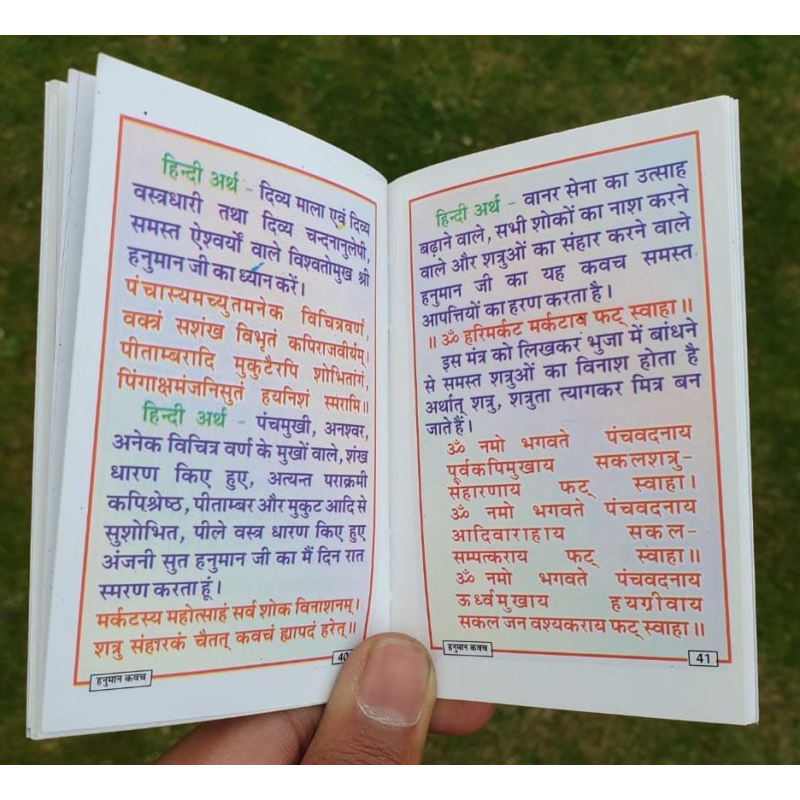 हिन्दी अर्थ - दिव्य माला एवं दिव्य
वस्त्रधारी तथा दिव्य चन्दनानुलेपी,
समस्त ऐश्वर्यों वाले विश्वतोमुख श्री
हनुमान जी का ध्यान करें।
पंचास्यमच्युतमनेक विचित्रवर्णं,
वक्त्रं सशंख विभृतं कपिराजवीर्यम्।
पीताम्बरादि मुकुटैरपि शोभितांगं,
पिंगाक्षमंजनिसुतं हयनिशं स्मरामि॥
हिन्दी अर्थ - पंचमुखी, अनश्वर,
अनेक विचित्र वर्ण के मुखों वाले, शंख
धारण किए हुए, अत्यन्त पराक्रमी
कपिश्रेष्ठ, पीताम्बर और मुकुट आदि से
सुशोभित, पीले वस्त्र धारण किए हुए
अंजनी सुत हनुमान जी का मैं दिन रात
स्मरण करता हूं।
मर्कटस्य महोत्साहं सर्व शोक विनाशनम्।
शत्रु संहारकं चैतत् कवचं ह्यापदं हरेत्॥
हनुमान कवच
40
हिन्दी अर्थ - वानर सेना का उत्साह
बढ़ाने वाले, सभी शोकों का नाश करने
वाले और शत्रुओं का संहार करने वाले
हनुमान जी का यह कवच समस्त
आपत्तियों का हरण करता है।
॥ ॐ हरिमर्कट मर्कटाव फट् स्वाहा॥
इस मंत्र को लिखकर भुजा में बांधने
से समस्त शत्रुओं का विनाश होता है
अर्थात् शत्रु, शत्रुता त्यागकर मित्र बन
जाते हैं।
ॐ नमो भगवते पंचवदनाय
पूर्वकपिमुखाय सकलशत्रु-
संहारणाय फट् स्वाहा।
ॐ नमो भगवते पंचवदनाय
आदिवाराहाय सकल-
सम्पत्कराय फट् स्वाहा॥
ॐ नमो भगवते पंचवदनाय
ऊर्ध्वमुखाय हयग्रीवाय
सकल जन वश्यकराय फट् स्वाहा॥
हनुमान कवच
41